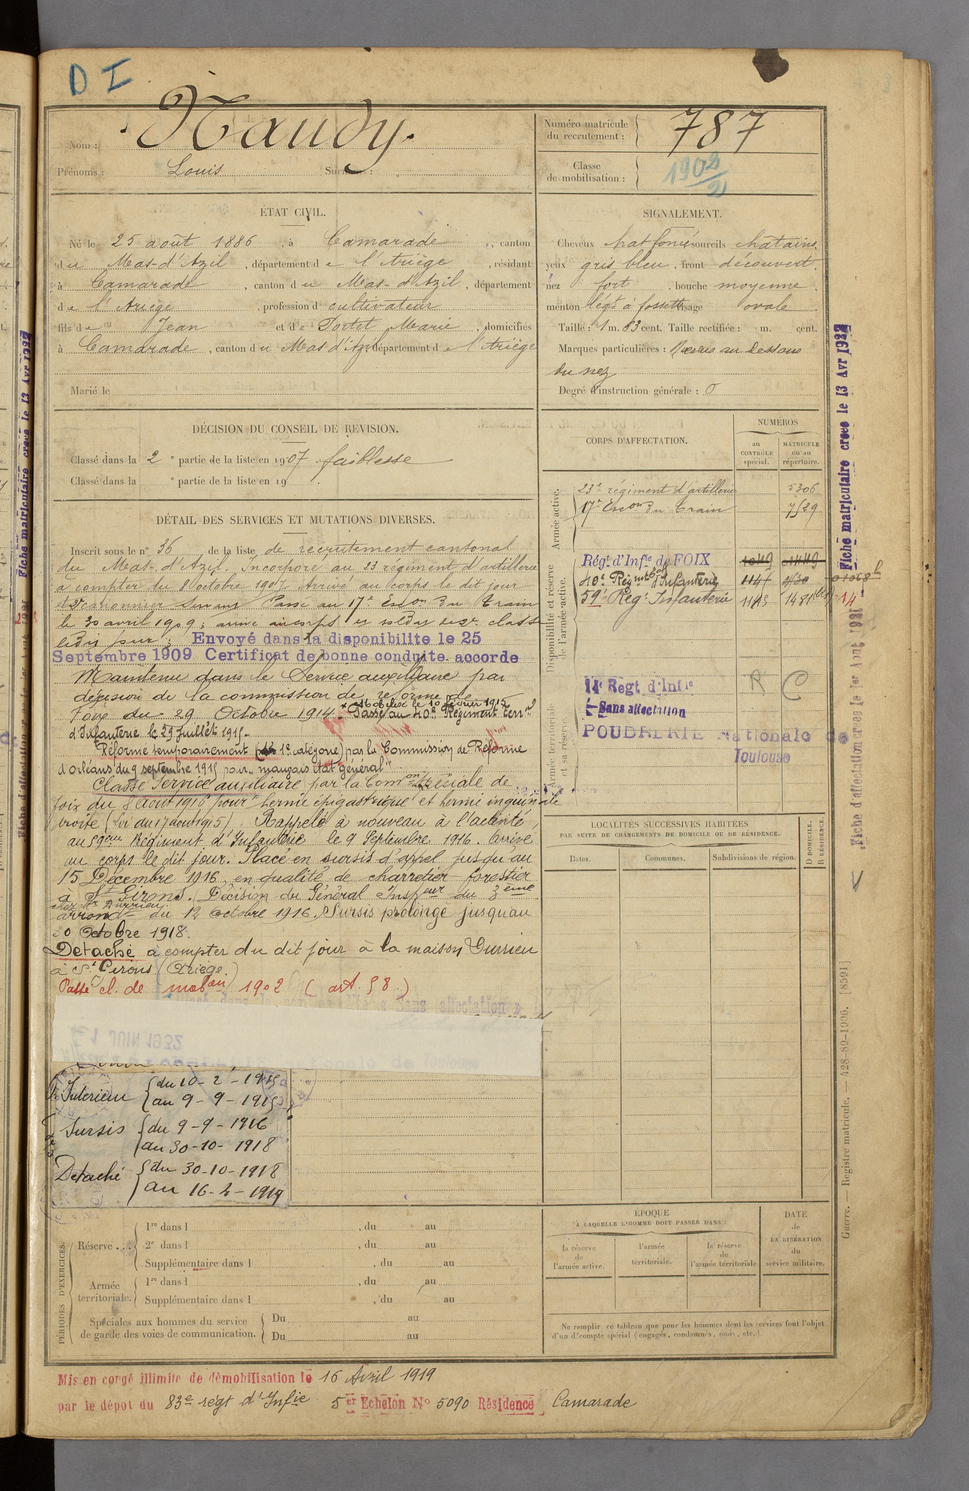 D I
Naudy.
Nom :
Prénoms : Louis Surnoms :
Numéro matricule
du recrutement : 787
Classe
de mobilisation : 1902
ÉTAT CIVIL.
Né le 25 août 1886, à Camarade, canton
du Mas-d'Azil, département de l'Ariège, résidant
à Camarade, canton du Mas-d'Azil, département
de l'Ariège, profession de cultivateur
fils de Jean et de Portet Marie, domiciliés
à Camarade, canton du Mas d'Azil, département de l'Ariège
Marié le
SIGNALEMENT.
Cheveux chat foncé sourcils chatains
yeux gris bleu, front découvert,
nez fort, bouche moyenne,
menton lég à fossette visage ovale
Taille : 1 m. 63 cent. Taille rectifiée : m. cent.
Marques particulières : Naevus au dessous
du nez
Degré d'instruction générale : 0
DÉCISION DU CONSEIL DE RÉVISION.
Classé dans la 2e partie de la liste en 1907 faiblesse
Classé dans la e partie de la liste en 19
DÉTAIL DES SERVICES ET MUTATIONS DIVERSES.
Inscrit sous le n° 36 de la liste de recrutement cantonal
du Mas-d'Azil. Incorporé au 23 régiment d'artillerie
à compter du 8 octobre 1907. Arrivé au corps le dit jour
2e canonnier servant Passé au 17e Escon du Train
le 30 avril 1909; arrivé au corps
le dit jour; Envoyé dans la disponibilite le 25
Septembre 1909 Certificat de bonne conduite accorde
Maintenu dans le Service auxiliaire par
décision de la commission de réforme de
Foix du 29 Octobre 1914. Mobilisé le 10 février 1915
Passé au 40e Régiment terr.al
d'Infanterie le 29 juillet 1915.
Réformé temporairement (1e catégorie) par la Commission de Réforme
d'Orléans du 9 septembre 1915 pour "mauvais état général"
Classé Service auxiliaire par la Comon spéciale de
foix du 8 août 1916 pour hernie épigastrique et hernie inguinale
droite (loi du 17 août 1915). Rappelé à nouveau à l'activité
au 59ème Régiment d'Infanterie le 9 Septembre 1916. Arrivé
au corps le dit jour. Placé en sursis d'appel jusqu'au
15 Décembre 1916 en qualité de charretier forestier
à St Girons. Décision du Général Inspeur du 3ème
arrondt du 12 Octobre 1916. Sursis prolongé jusquau
30 Octobre 1918.
Detaché à compter du dit jour à la maison Durrieu
à St Girons (Ariège.)
Passé cl. de mobon 1902 (art. 58.)
1 JUIN 1932
Intérieur du 10-2-1915
au 9-9-1915
Sursis du 9-9-1916
au 30-10-1918
Detaché du 30-10-1918
au 16-4-1919
CORPS D'AFFECTATION.
NUMÉROS
au
CONTRÔLE
spécial.
MATRICULE
ou au
répertoire.
Armée active.
23e régiment d'artillerie 5306
17e Escon du Train 7529
Disponibilité et réserve
de l'armée active.
Régt d'Infie de FOIX 1049
40e Régiment d'Infanterie
59e Reg. Infanterie 1145
Armée territoriale
et sa réserve.
14e Regt d'Infie R C
Sans affectation
POUDRERIE Nationale de
Toulouse
LOCALITÉS SUCCESSIVES HABITÉES
PAR SUITE DE CHANGEMENTS DE DOMICILE OU DE RÉSIDENCE.
Dates.
Communes.
Subdivisions de région.
D DOMICILE.
R RÉSIDENCE.
PÉRIODES D'EXERCICES.
Réserve... 1re dans l , du au
2e dans l , du au
Supplémentaire dans l , du au
Armée
territoriale. 1re dans l , du au
Supplémentaire dans l , du au
Spéciales aux hommes du service
de garde des voies de communication. Du au
Du au
ÉPOQUE
À LAQUELLE L'HOMME DOIT PASSER DANS :
la réserve
de
l'armée active.
l'armée
territoriale.
la réserve
de
l'armée territoriale
DATE
de
LA LIBÉRATION
du
service militaire.
Ne remplir ce tableau que pour les hommes dont les services font l'objet
d'un décompte spécial (engagés, condamnés, omis, etc.)
Mis en congé illimité de démobilisation le 16 Avril 1919
par le dépot du 83e régt d'Infie 5er Echelon No 5090 Résidence Camarade
Fiche matriculaire creee le 13 Avr 1922
Fiche d'affectation creee le 1er Aout 1921
Guerre. — Registre matricule. — 428-89-1906. [8591]